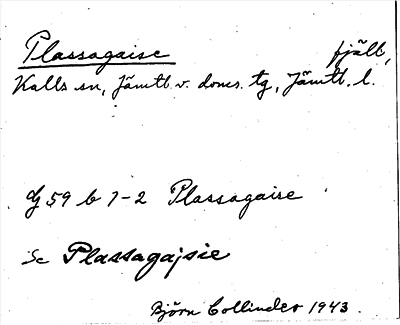 Plassagaise fjäll,
Kalls sn, Jämtl. v. doms. tg, Jämtl. l.
59 b 1-2 Plassagaise
Se Plassagajsie
Björn Collinder 1943.